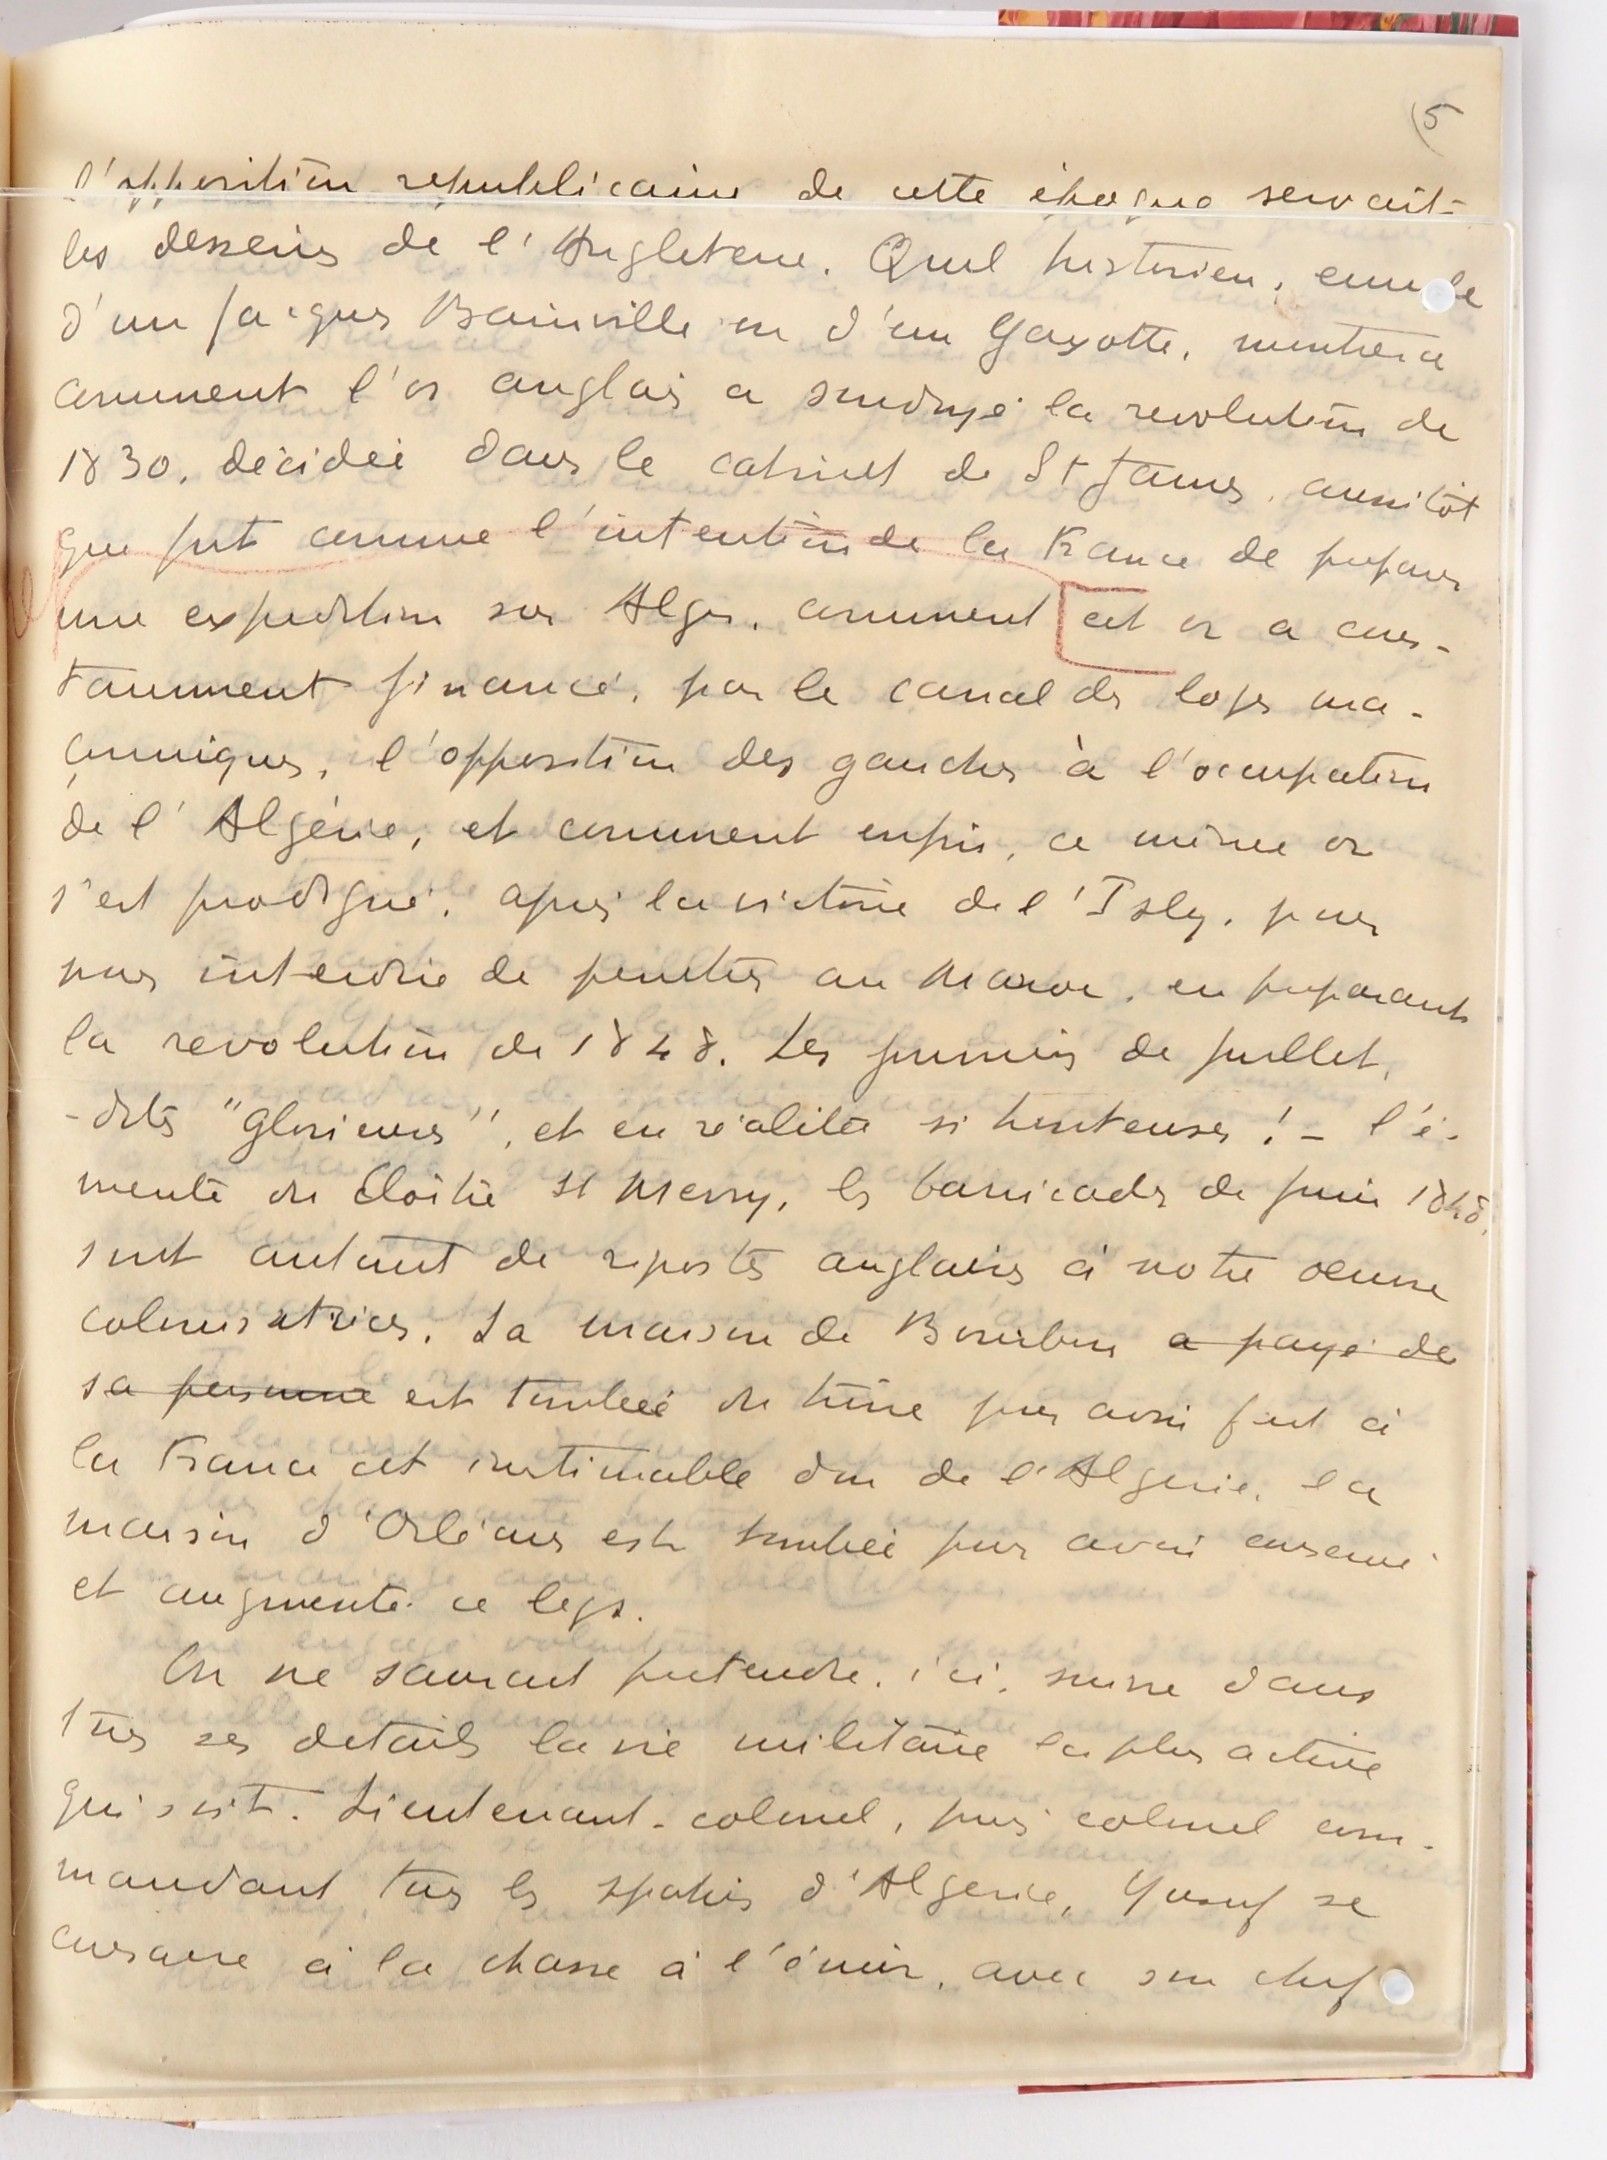 5
l'opposition republicaine de cette époque servait
les desseins de l'Angleterre. Quel historien, emule
d'un Jacques Bainville ou d'un Gaxotte, montrera
comment l'or anglais a soudoyé la revolution de
1830, décidée dans le cabinet de St James, aussitôt
que fut connue l'intention de la France de préparer
une expedition sur Alger, comment cet or a cons-
tamment financé, par le canal des loges ma-
çonniques, l'opposition des gauches à l'occupation
de l'Algérie, et comment enfin, ce même or
s'est prodigué, après la victoire de l'Isly, pour
nous interdire de penetrer au Maroc, en preparant
la revolution de 1848. Les journées de juillet,
- dites "glorieuses", et en réalité si honteuses! - l'é-
meute du Cloître St Merry, les barricades de juin 1848,
sont autant de ripostes anglaises à notre oeuvre
colonisatrices. La maison de Bourbon a payé de
sa personne est tombée du trône pour avoir fait à
la France cet inestimable don de l'Algerie, la
maison d'Orléans est tombée pour avoir conservé
et augmenté ce legs.
On ne saurait pretendre, ici, suivre dans
tous ses details la vie militaire la plus active
qui soit. Lieutenant-colonel, puis colonel com-
mandant tous les spahis d'Algerie, Yusuf se
consacre à la chasse à l'émir, avec son chef